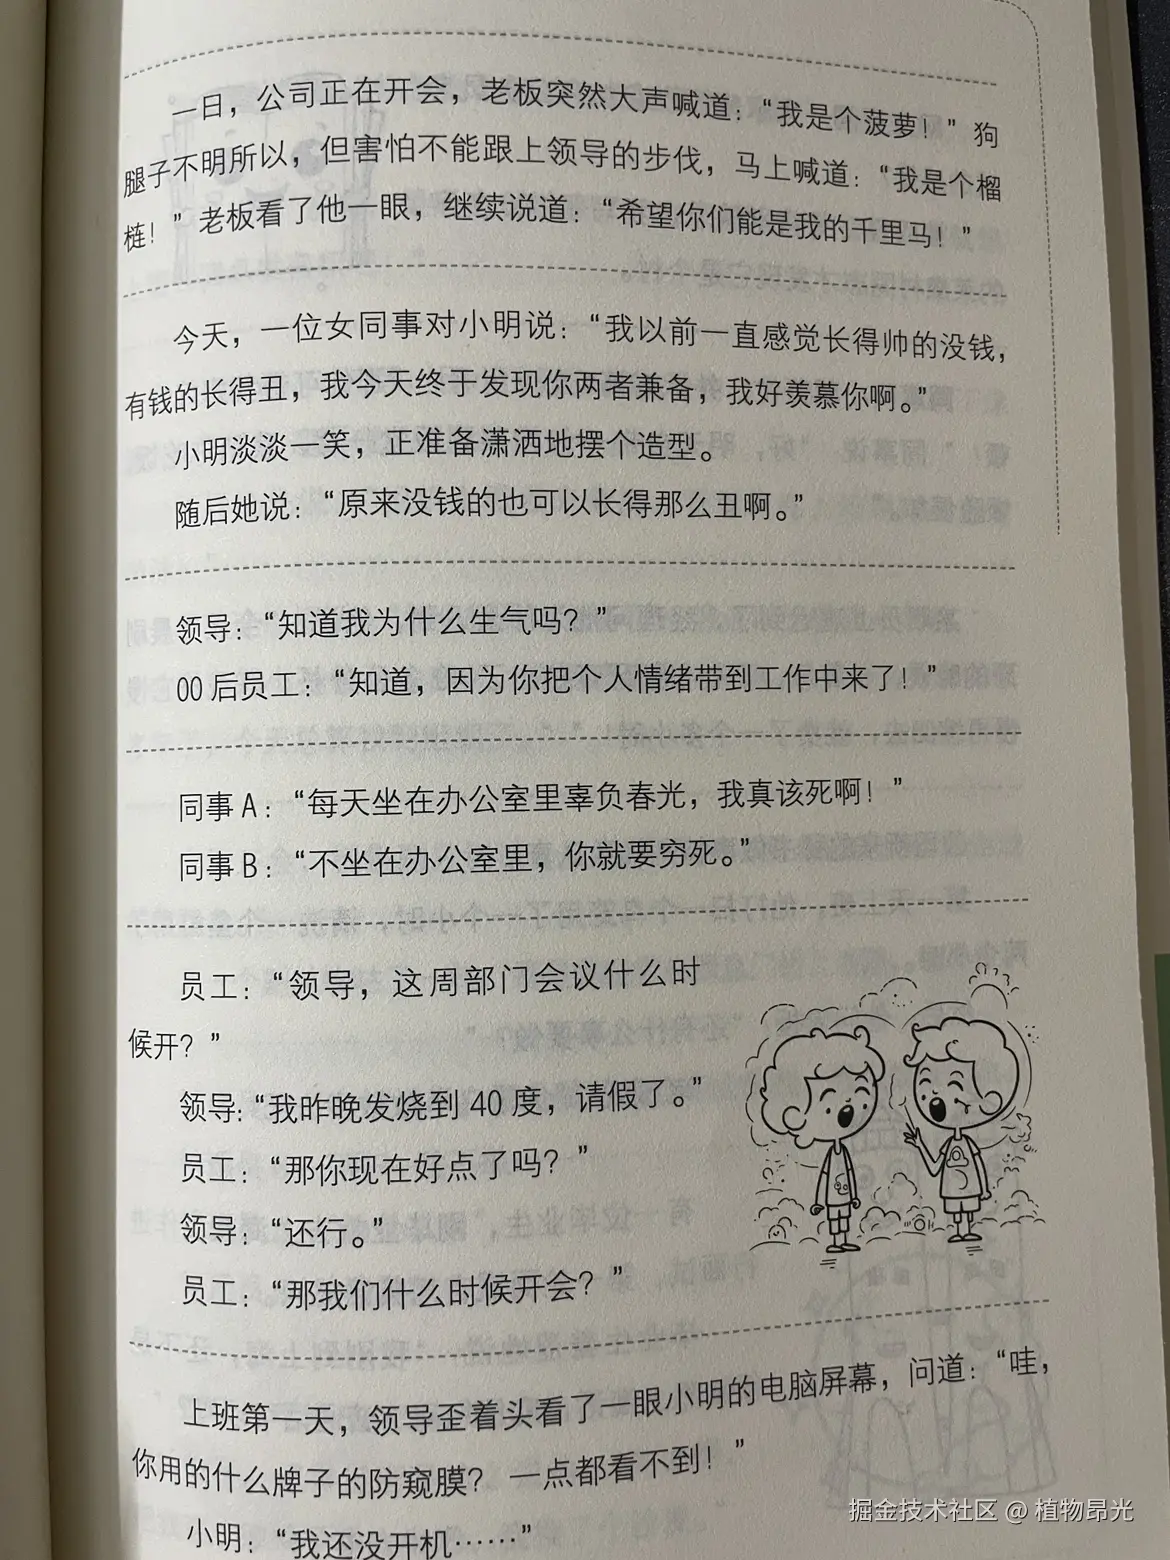 一日，公司正在开会，老板突然大声喊道：“我是个菠萝！”狗
腿子不明所以，但害怕不能跟上领导的步伐，马上喊道：“我是个榴
梿！”老板看了他一眼，继续说道：“希望你们能是我的千里马！”
今天，一位女同事对小明说：“我以前一直感觉长得帅的没钱，
有钱的长得丑，我今天终于发现你两者兼备，我好羡慕你啊。”
小明淡淡一笑，正准备潇洒地摆个造型。
随后她说：“原来没钱的也可以长得那么丑啊。”
领导：“知道我为什么生气吗？”
00后员工：“知道，因为你把个人情绪带到工作中来了！”
同事A：“每天坐在办公室里辜负春光，我真该死啊！”
同事B：“不坐在办公室里，你就要穷死。”
员工：“领导，这周部门会议什么时
候开？”
领导：“我昨晚发烧到40度，请假了。”
员工：“那你现在好点了吗？”
领导：“还行。”
员工：“那我们什么时候开会？”
上班第一天，领导歪着头看了一眼小明的电脑屏幕，问道：“哇，
你用的什么牌子的防窥膜？一点都看不到！”
小明：“我还没开机……”
掘金技术社区 @ 植物昂光